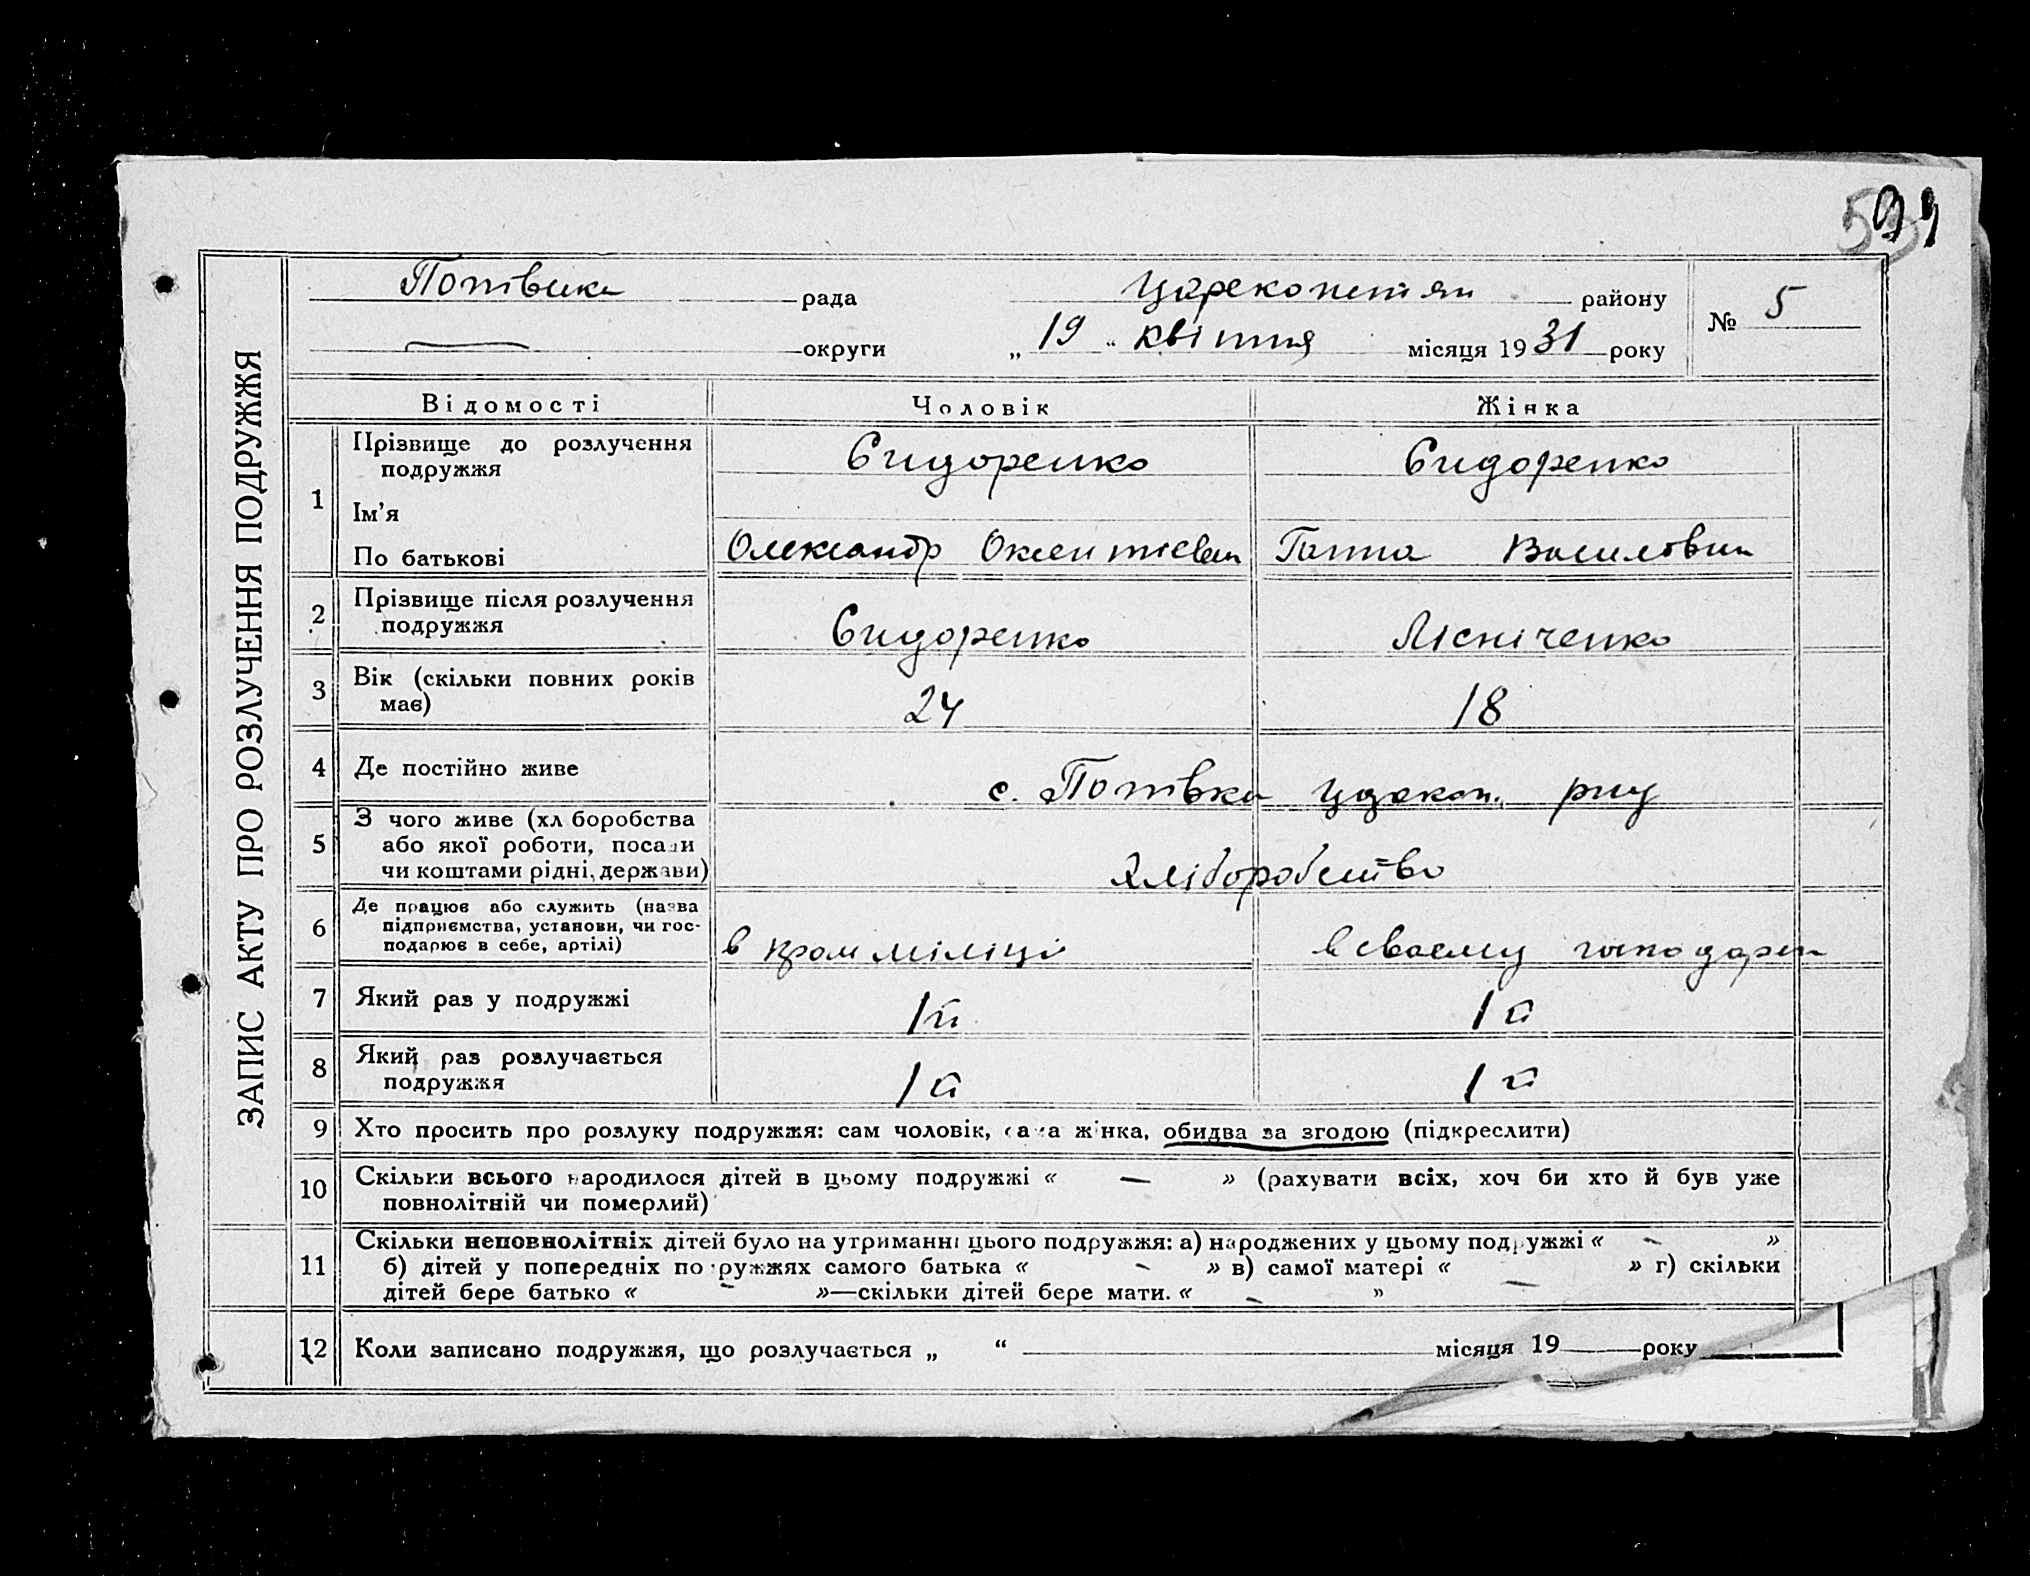 ЗАПИС АКТУ ПРО РОЗЛУЧЕННЯ ПОДРУЖЖЯ
рада
району
№ 5
округи
„ 19 “ квітня місяця 1931 року
Відомості Чоловік Жінка
1 Прізвище до розлучення подружжя Сидоренко Сидоренко
Ім’я
По батькові Олександр Ганна
2 Прізвище після розлучення
подружжя Сидоренко Лісніченко
3 Вік (скільки повних років
має) 24 18
4 Де постійно живе с. Потівка
5 З чого живе (хл боробства
або якої роботи, посади
чи коштами рідні, держави) хліборобство
6 Де працює або служить (назва
підприємства, установи, чи гос-
подарює в себе, артілі) в міліції в своєму
7 Який раз у подружжі 1й 1й
8 Який раз розлучається
подружжя 1й 1й
9 Хто просить про розлуку подружжя: сам чоловік, сама жінка, обидва за згодою (підкреслити)
10 Скільки всього народилося дітей в цьому подружжі « — » (рахувати всіх, хоч би хто й був уже
повнолітній чи померлий)
11 Скільки неповнолітніх дітей було на утриманні цього подружжя: а) народжених у цьому подружжі « - »
б) дітей у попередніх подружжях самого батька « - » в) самої матері « - » г) скільки
дітей бере батько « - »—скільки дітей бере мати. « - »
12 Коли записано подружжя, що розлучається „ “ місяця 19 року